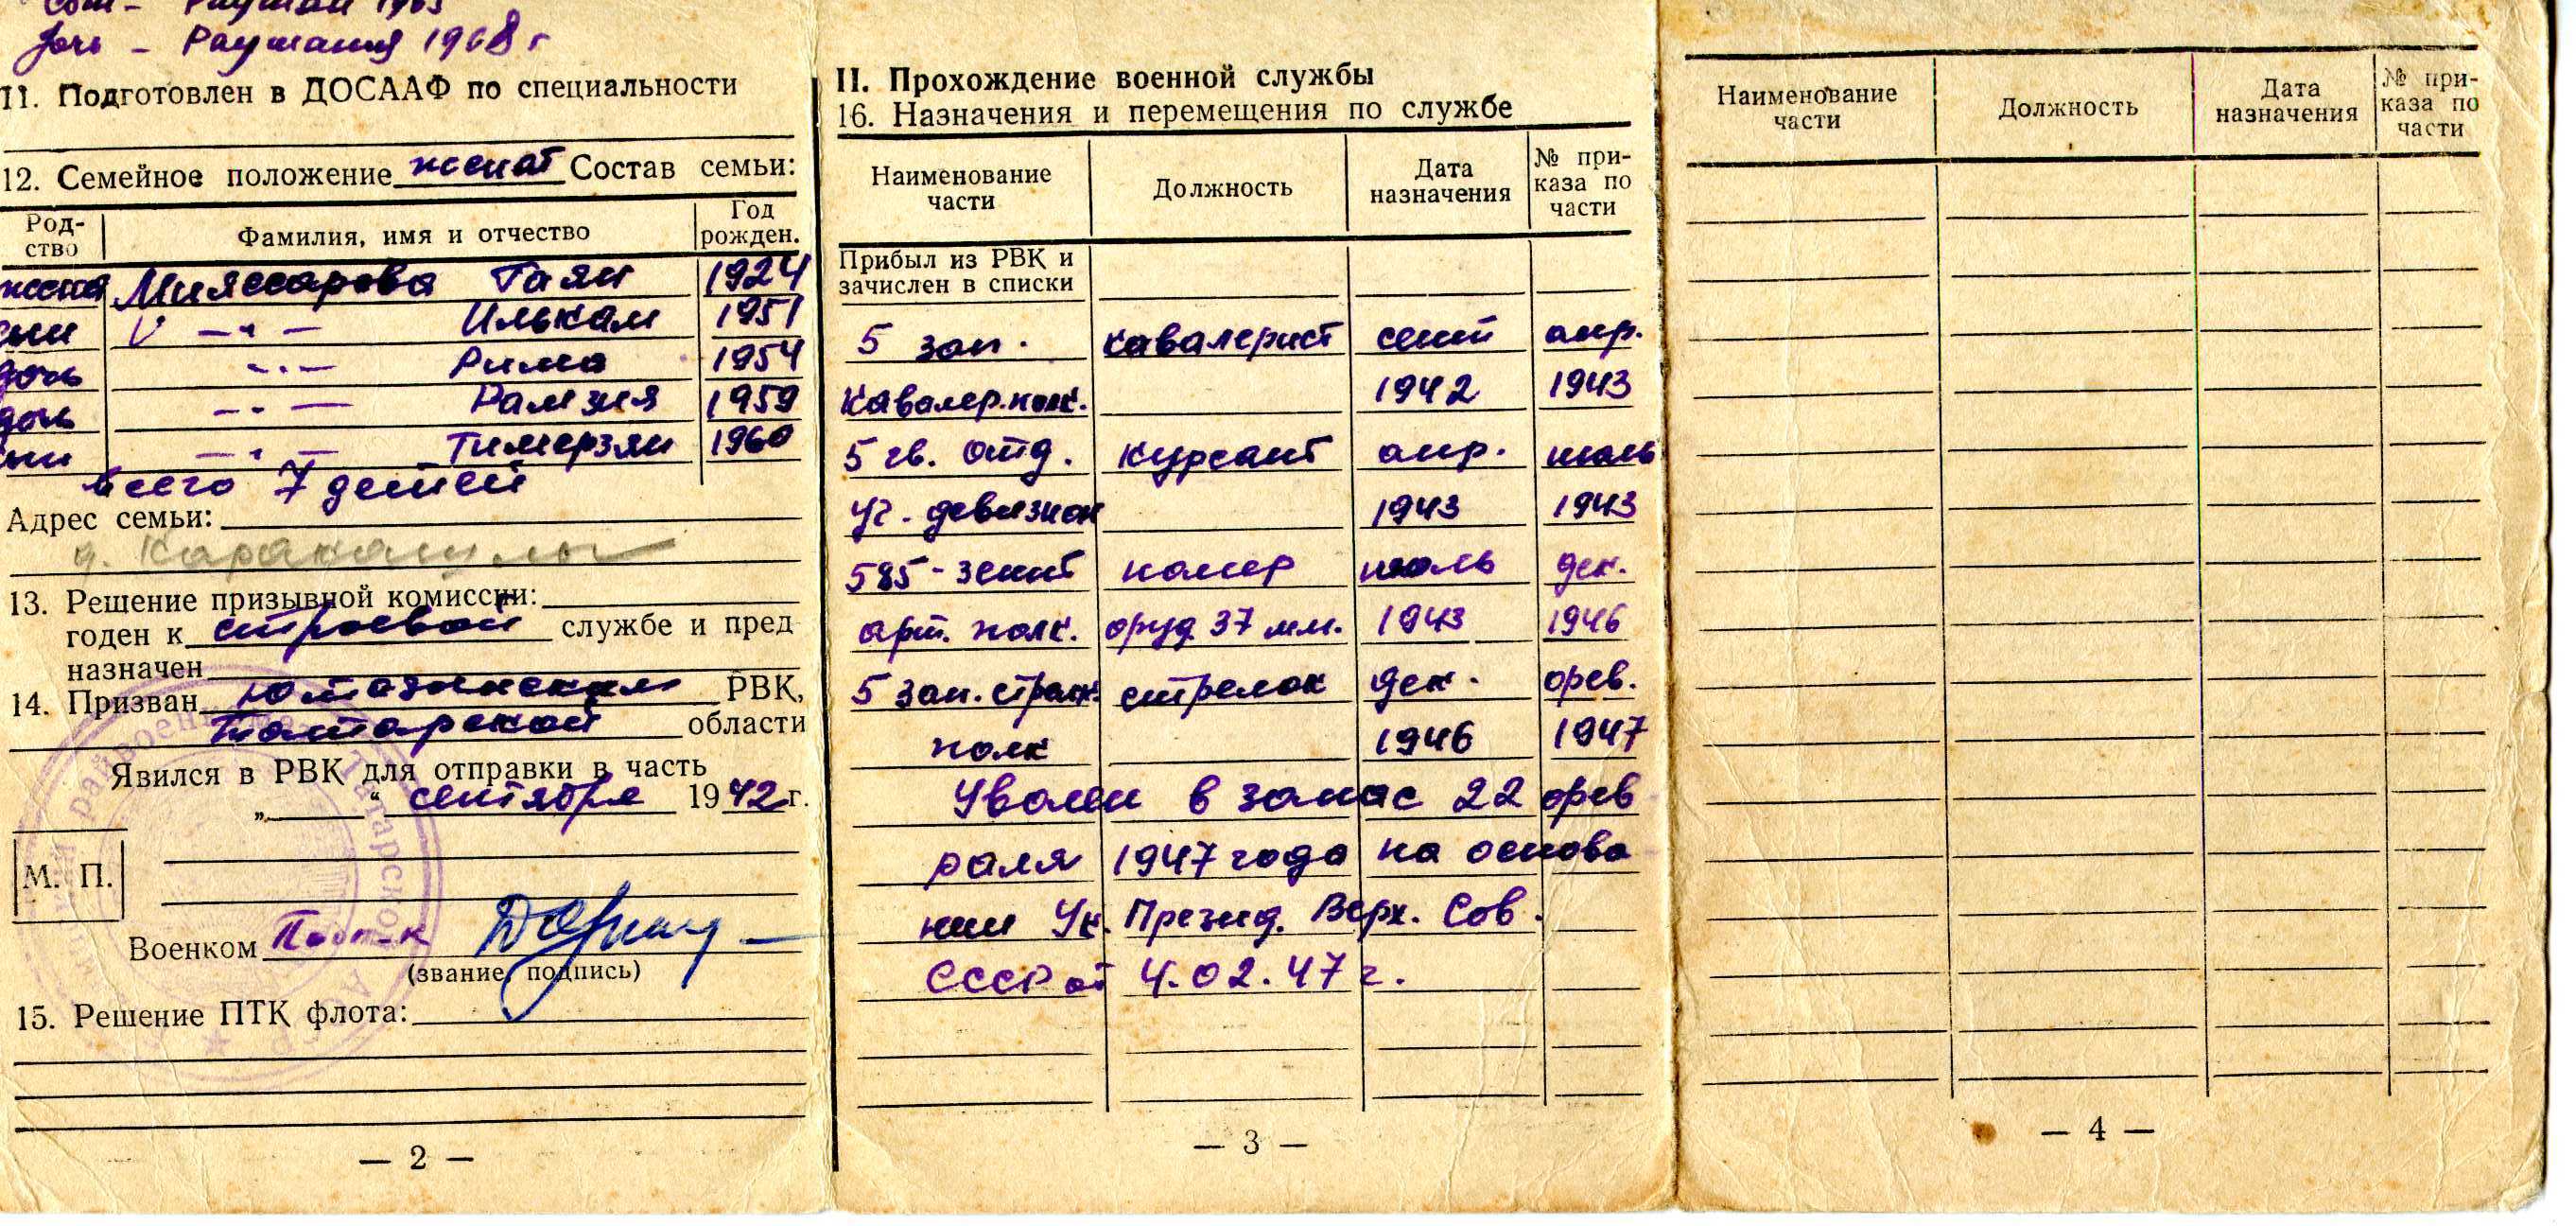 Раушан 1963
дочь - Раушания 1968 г
11. Подготовлен в ДОСААФ по специальности
12. Семейное положение женат Состав семьи:
Род-
ство
Фамилия, имя и отчество
Год
рожден.
жена Миассарова Гаян 1924
сын —〃— Илькам 1951
дочь —〃— Рима 1954
дочь —〃— Рамзия 1959
сын —〃— Тимерзян 1960
Всего 7 детей
Адрес семьи:
д. Каракашлы
13. Решение призывной комиссии:
годен к строевой службе и пред
назначен
14. Призван Ютазинским РВК,
Татарской области
Явился в РВК для отправки в часть
„ “ сентября 1942 г.
М. П.
Военком
(звание, подпись)
15. Решение ПТК флота:
— 2 —
II. Прохождение военной службы
16. Назначения и перемещения по службе
Наименование
части
Должность
Дата
назначения
№ при-
каза по
части
Прибыл из РВК и
зачислен в списки
5 зап. кавалерист сент апр.
кавалер. полк. 1942 1943
5 гв. отд. курсант апр. июль
уч. девизион 1943 1943
585-зенит номер июль дек.
арт. полк. оруд 37 мм. 1943 1946
5 зап. стрелк. стрелок дек. фев.
полк 1946 1947
Уволен в запас 22 фев
раля 1947 года на основа
нии Ук. Презид. Верх. Сов.
СССР от 4.02.47 г.
— 3 —
Наименование
части
Должность
Дата
назначения
№ при-
каза по
части
— 4 —